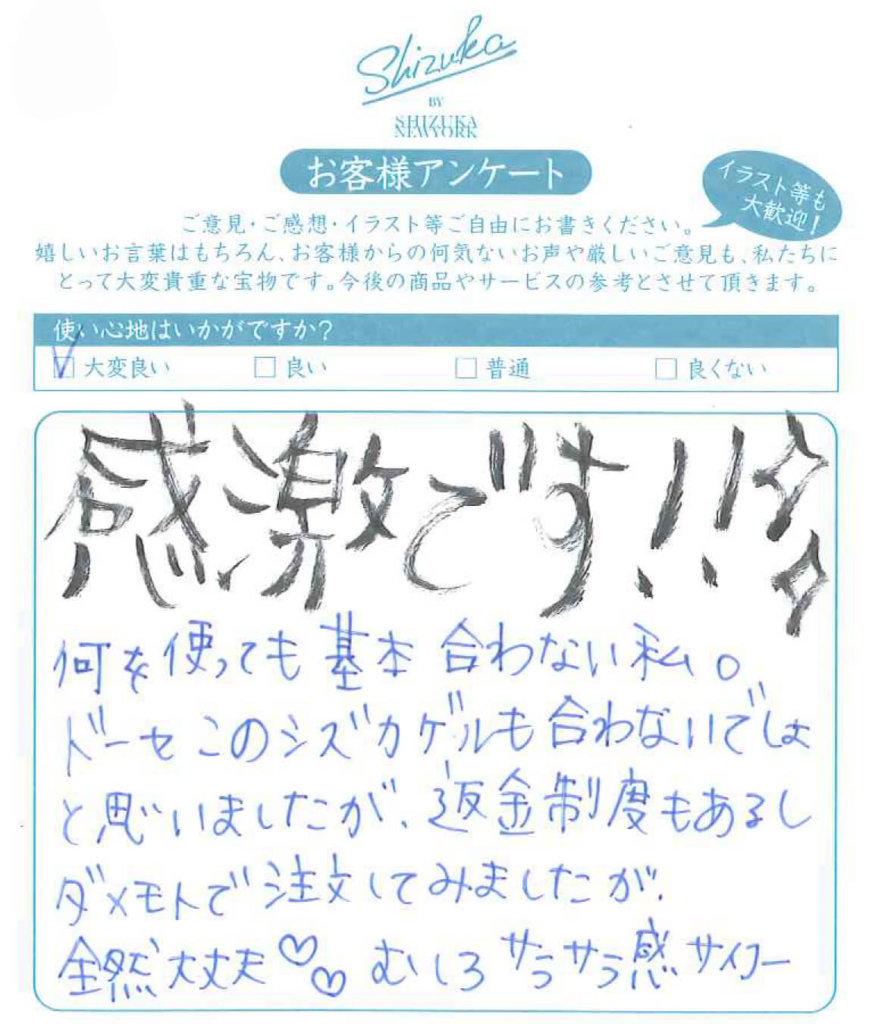 Shizuka
BY
SHIZUKA
NEWYORK
お客様アンケート
イラスト等も
大歓迎!
ご意見・ご感想・イラスト等ご自由にお書きください。
嬉しいお言葉はもちろん、お客様からの何気ないお声や厳しいご意見も、私たちに
とって大変貴重な宝物です。今後の商品やサービスの参考とさせて頂きます。
使い心地はいかがですか?
大変良い 良い 普通 良くない
感激です!!
何を使っても基本合わない私。
ドーセこのシズカゲルも合わないでしょ
と思いましたが、返金制度もあるし
ダメモトで注文してみましたが、
全然大丈夫♡♡むしろサラサラ感サイコー